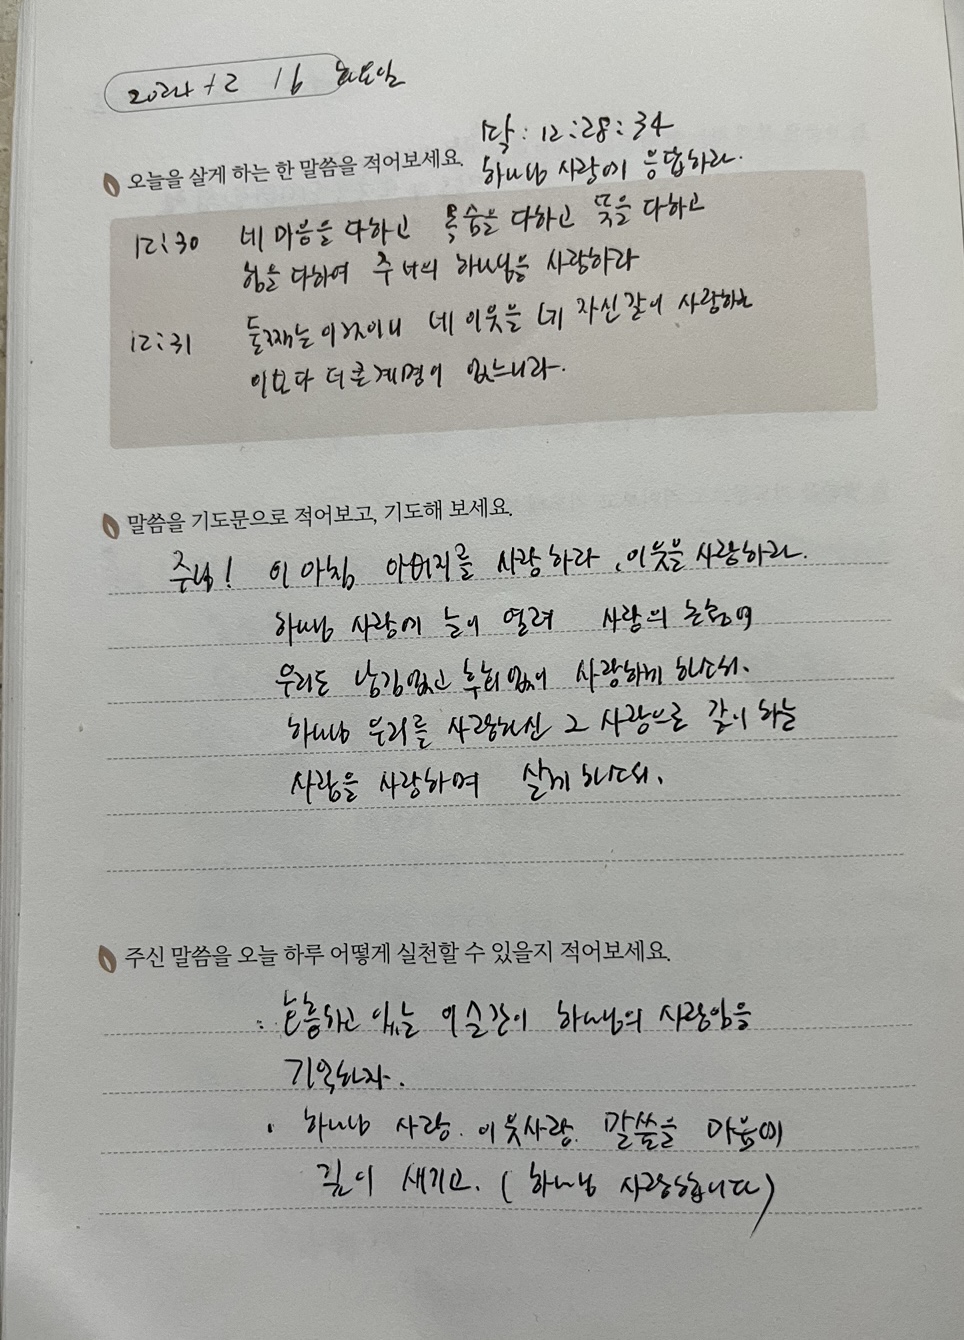 2024 12 16 화요일
막 : 12:28:34
오늘을 살게 하는 한 말씀을 적어보세요.
하나님 사랑에 응답하라.
12:30 네 마음을 다하고 목숨을 다하고 뜻을 다하고
힘을 다하여 주 너의 하나님을 사랑하라
12:31 둘째는 이것이니 네 이웃을 네 자신 같이 사랑하는
이보다 더 큰 계명이 없느니라.
말씀을 기도문으로 적어보고, 기도해 보세요.
주님! 이 아침 아버지를 사랑하라, 이웃을 사랑하라.
하나님 사랑에 눈이 열려 사랑의
우리도 남김없고 후회없이 사랑하게 하소서.
하나님 우리를 사랑하신 그 사랑으로 같이 하늘
사람을 사랑하며 살게 하소서.
주신 말씀을 오늘 하루 어떻게 실천할 수 있을지 적어보세요.
: 호흡하고 있는 이 순간이 하나님의 사랑임을
기억하자.
. 하나님 사랑. 이웃사랑. 말씀을 마음에
깊이 새기고. (하나님 사랑합니다)